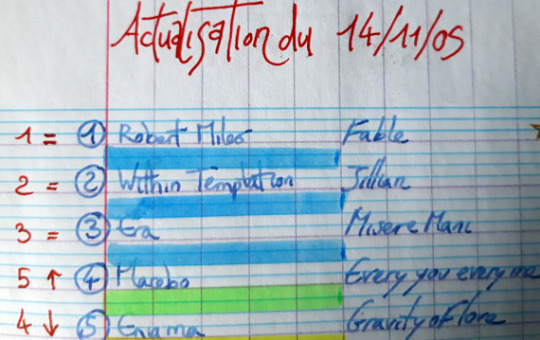 Actualisation du 14/11/05
1 = ① Robert Miles Fable
2 = ② Within Temptation Jillian
3 = ③ Era Misere Mani
5 ↑ ④ Placebo Every you every me
4 ↓ ⑤ Enigma Gravity of Love